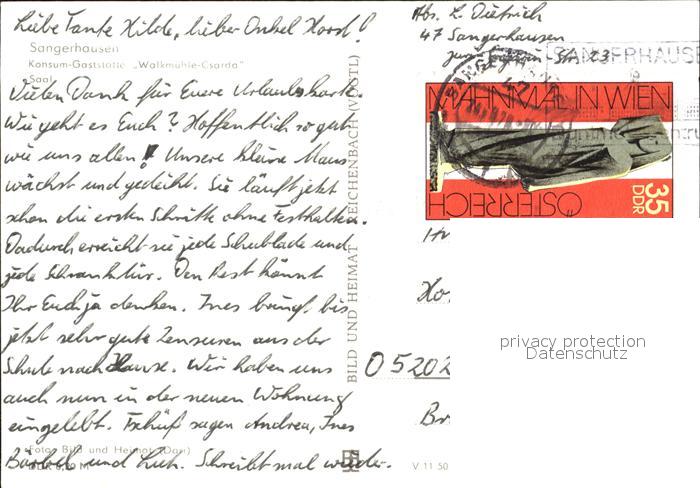 Liebe Tante Hilde, lieber Onkel Horst!
Sangerhausen
Konsum-Gaststätte „Walkmühle-Csarda"
Saal
Vielen Dank für Euere Urlaubskarte.
Wie geht es Euch? Hoffentlich so gut
wie uns allen! Unsere kleine Maus
wächst und gedeiht. Sie läuft jetzt
schon die ersten Schritte ohne Festhalten.
Dadurch erreicht sie jede Schublade und
jede Schranktür. Den Rest könnt
Ihr Euch ja denken. Ines bringt bis
jetzt sehr gute Zensuren aus der
Schule nach Hause. Wir haben uns
auch nun in der neuen Wohnung
eingelebt. Tschüß sagen Andrea, Ines
Foto: Bild und Heimat (Darr)
Bärbel und Lutz. Schreibt mal wieder.
BILD UND HEIMAT REICHENBACH (VOGTL)
V 11 50
Abs. L. Dietrich
47 Sangerhausen
SANGERHAUSE
MAHNMAL IN WIEN
ÖSTERREICH
35
DDR
Ho
privacy protection
Datenschutz
05202
Br